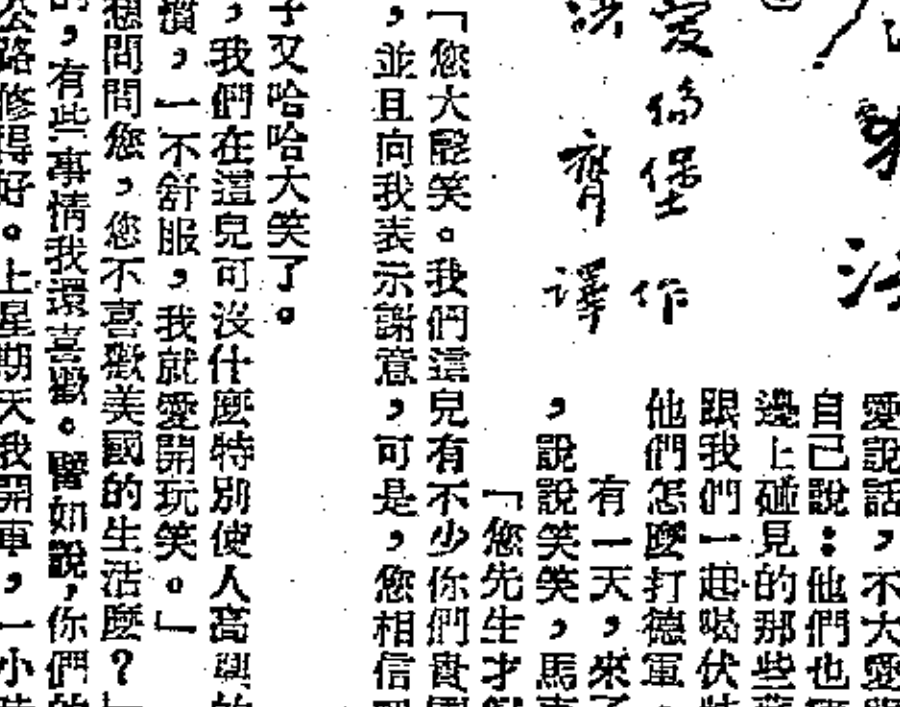 愛說話，不大愛
自己說：他們也
邊上碰見的那些
跟我們一起喝伏
他們怎麼打德軍，
有一天，來了
，說說笑笑，馬
「您先生才
愛倫堡 作
齊譯
「您大聲笑。我們這兒有不少你們貴國
，並且向我表示謝意，可是，您相信
子又哈哈大笑了。
，我們在這兒可沒什麼特別使人高興的
慣，一不舒服，我就愛開玩笑。」
想問問您，您不喜歡美國的生活麼？」
的，有些事情我還喜歡。譬如說，你們的
公路修得好。上星期天我開車，一小時